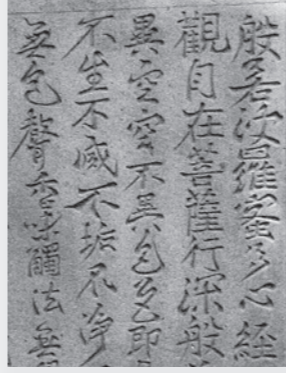 般若波羅蜜多心経
觀自在菩薩行深般
異空空不異色色即
不生不滅不垢不淨
無色聲香味觸法無